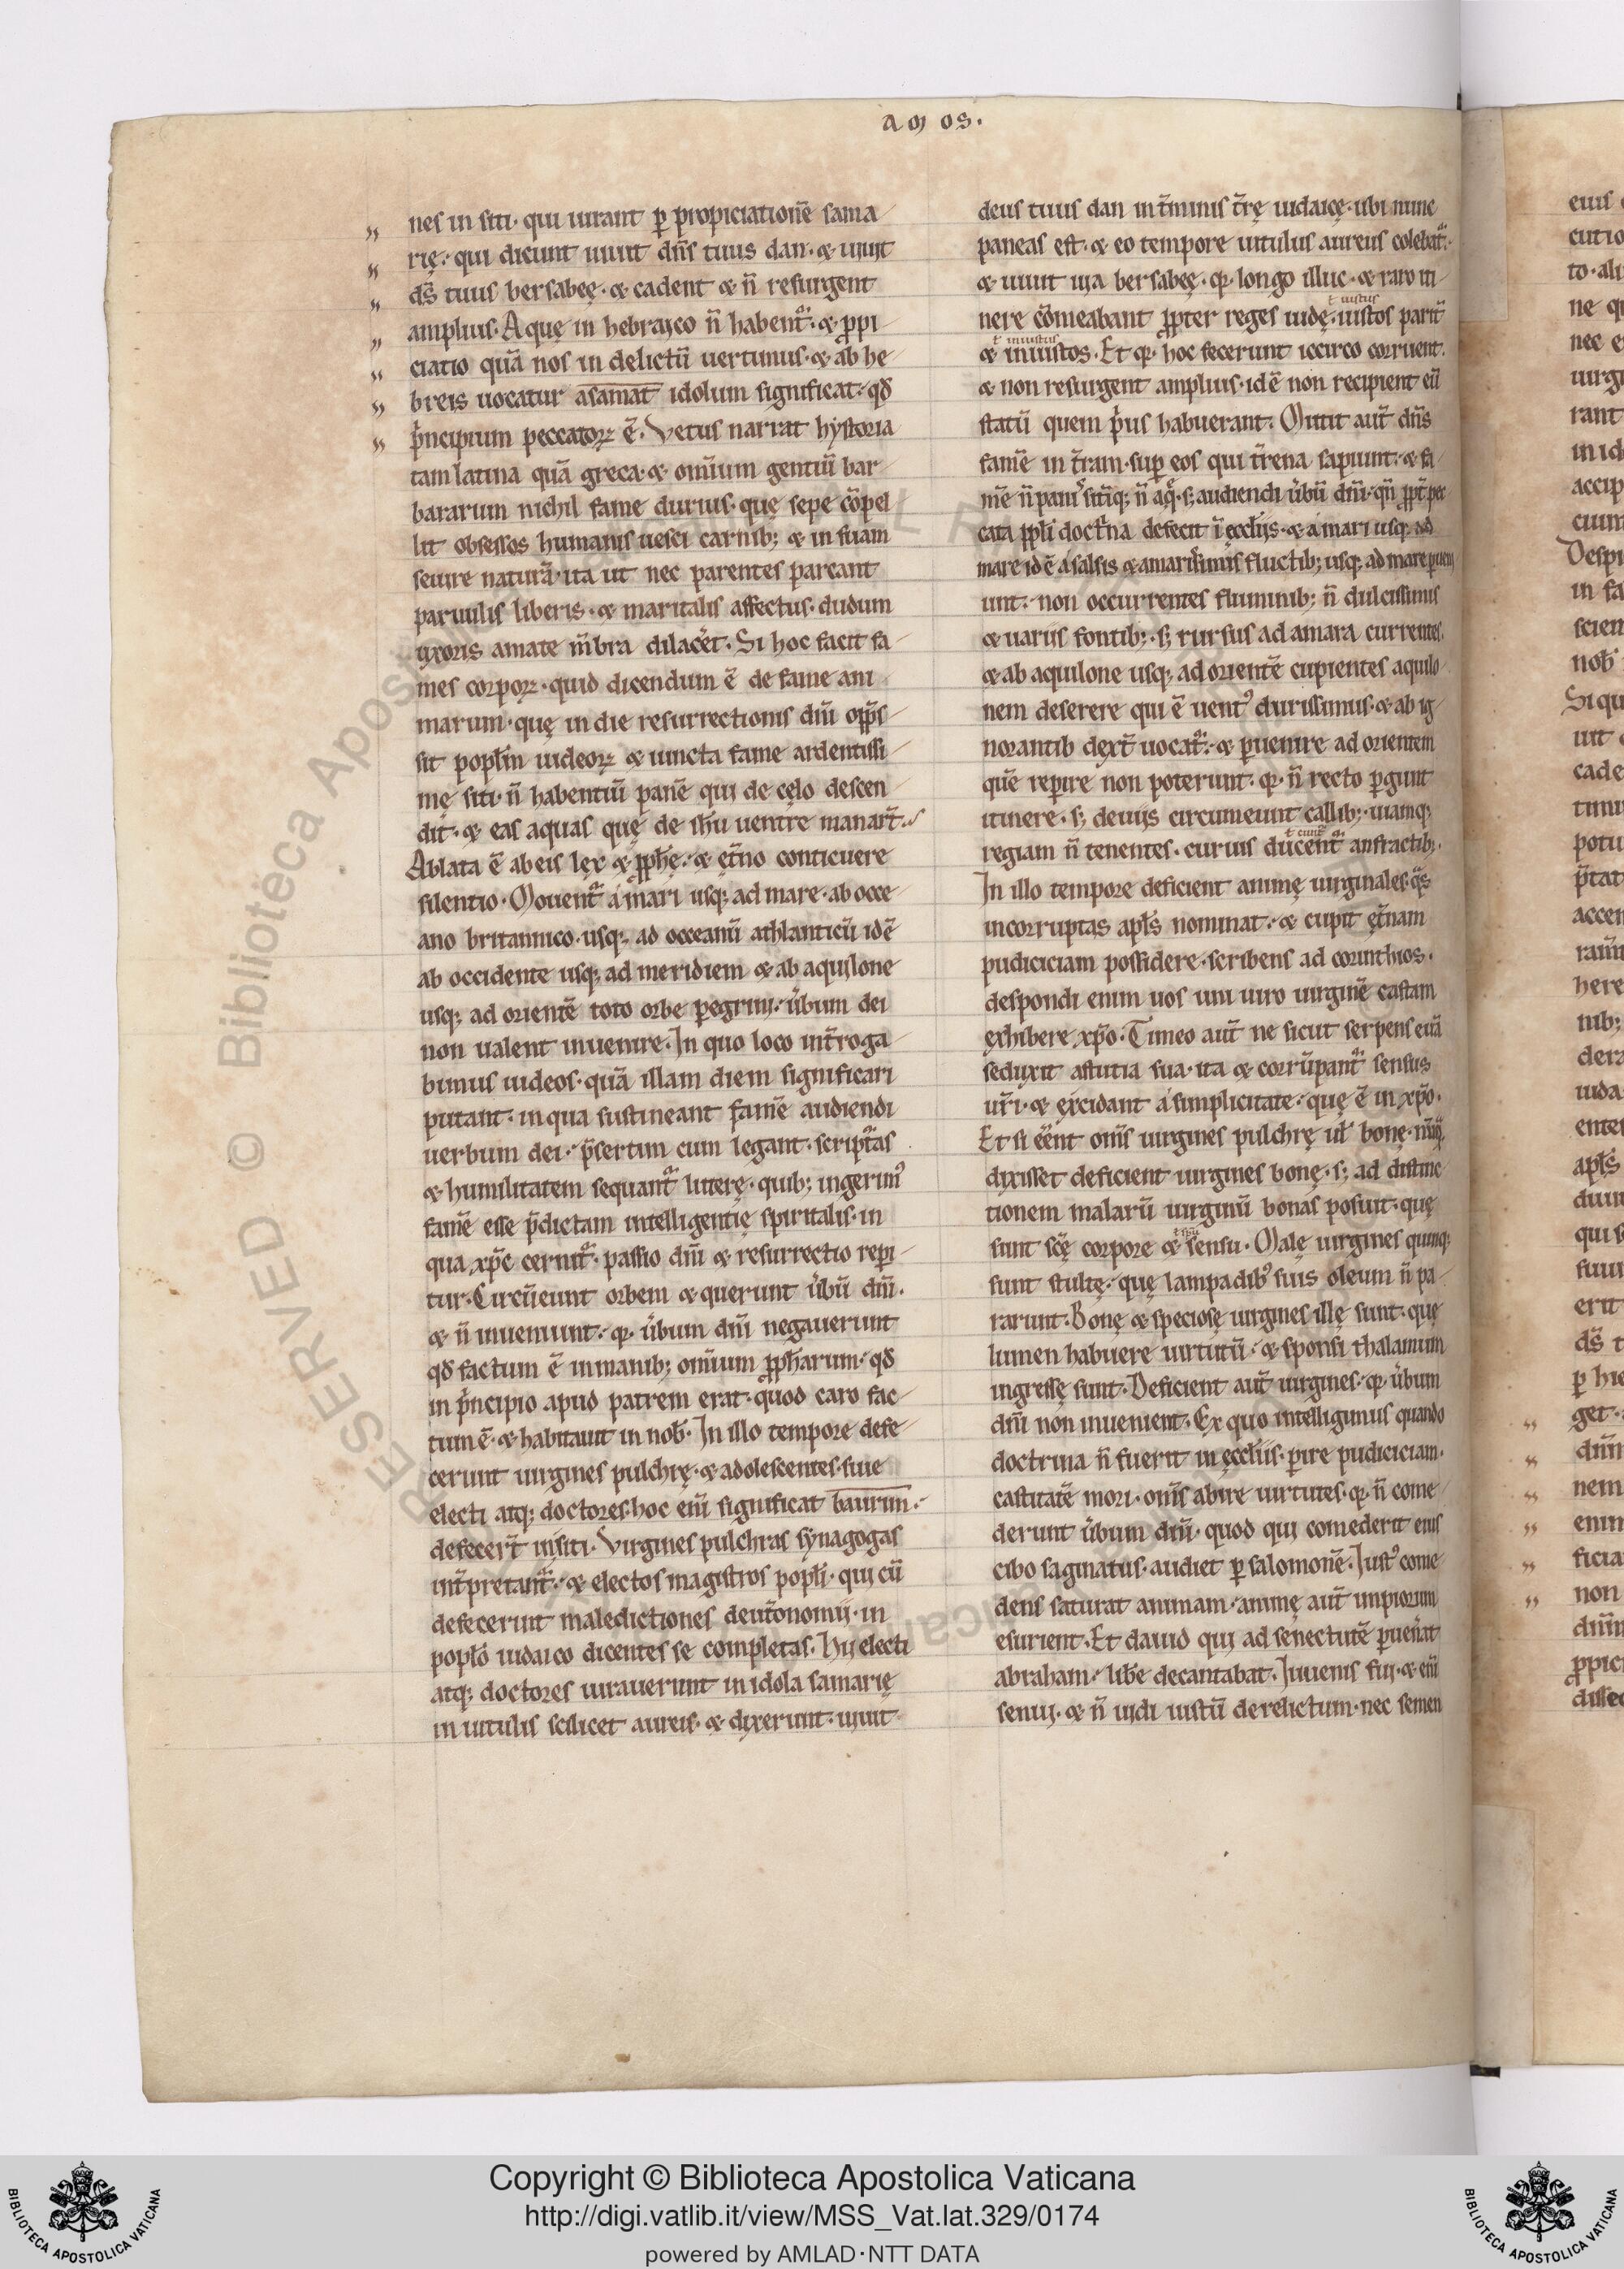 amos.
nes in siti· qui iurant ꝑ propiciationē sama
rię· qui dicunt uiuit dn̄s tuus dan· & uiuit
ds̄ tuus bersabeę· & cadent & n̄ resurgent
amplius· Aquę in hebrayco n̄ habent᷑· & ꝓpi
ciatio quā nos in delictū uertimus· & ab he
breis uocatur asamat idolum significat· qd̄
pͥncipium peccatoꝝ ē· Vetus narrat hystoria
tam latina quā greca· & om̄ium gentiū bar
bararum nichil fame durius· quę sepe cōpel
lit obsessos humanis uesci carnib; & in suam
seuire naturā· ita ut nec parentes parcant
paruulis liberis· & maritalis affectus· dudum
uxoris amate m̄bra dilacet̄· Si hoc facit fa
mes corpoꝝ· quid dicendum ē de fame ani
marum· quę in die resurrectionis dn̄i opp̄s
sit popl̄m iudeoꝝ & iuncta fame ardentissi
mę siti· n̄ habentiū panē qui de cęlo descen
dit· & eas aquas quę de ih̄u uentre manar̄t·
Ablata ē ab eis lex & ꝓph̄ę· & et̄no conticuere
silentio· Mouent᷑ a mari usq; ad mare· ab occe
ano britannico· usq; ad occeanū athlanticū idē
ab occidente usq; ad meridiem & ab aquilone
usq; ad orientē toto orbe ꝑegrini· ūbum dei
non ualent inuenire· In quo loco int̄roga
bimus iudeos· quā illam diem significari
putant· in qua sustineant famē audiendi
uerbum dei· p̄sertim cum legant· scriptͣas
& humilitatem sequant᷑ litterę· quib; ingerimꝰ
famē esse p̄dictam intelligentię spiritalis· in
qua xp̄c cernit᷑· passio dn̄i & resurrectio reꝑi
tur· Circūeunt orbem & querunt ūbū dn̄i·
& n̄ inueniunt· qꝛ ūbum dn̄i negauerunt
qd̄ factum ē in manib; om̄ium ꝓph̄arum· qd̄
in pͥncipio apud patrem erat· quod caro fac
tum ē· & habitauit in nob̄· In illo tempore defe
cerunt uirgines pulchrę· & adolescentes· siue
electi atq; doctores· hoc eni̅ significat baurim·
defecer̄t in siti· Virgines pulchras synagogas
int̄pretant᷑· & electos magistros popl̄i· qui cū
defecerunt maledictiones deut̄onomii· in
popl̄o iudaico dicentes se completas· Hii electi
atq; doctores iurauerunt in idola samarię
in uitulis scilicet aureis· & dixerunt· uiuit
deus tuus dan in t̄minis t̄rę iudaicę· ubi nunc
paneas est· & eo tempore uitulus aureus colebat᷑·
& uiuit uia bersabeę· qꝛ longo illuc· & raro iti
ł iustus
nere cōmeabant ꝓpter reges iudę· iustos parit̄
ł iniustus
& iniustos· Et qꝛ hoc fecerunt iccirco corruent·
& non resurgent amplius· id ē non recipient eū
statū quem pͥus habuerant· Mittit aut̄ dn̄s
famē in t̄ram· suꝑ eos qui t̄rena sapiunt· & fa
mē n̄ panis sitīq; n̄ aqͣ· s; audiendi ūbū dn̄i· qn̄ ꝓpt̄ pec
cata ppl̄i doctͥna defecit ī ęccl̄iis· & a mari usq; ad
mare id ē a salsis & amarissimis fluctib; usq; ad mare pueni
unt· non occurrentes fluminib; n̄ dulcissimis
& uariis fontib;· s; rursus ad amara currentes·
& ab aquilone usq; ad orientē cupientes aquilo
nem deserere qui ē uentꝰ durissimus· & ab ig
norantib dext̄ uocat᷑· & ꝑuenire ad orientem
quē reꝑire non poterunt· qꝛ n̄ recto ꝑgunt
itinere· s; deuiis circumeunt callib;· uiamq;
regiam n̄ tenentes· curuis ducent᷑ anfractib;·
In illo tempore deficient animę uirginales· qͣs
incorruptas apl̄s nominat· & cupit et̄nam
pudiciciam possidere· scribens ad corinthios·
despondi enim uos uni uiro uirginē castam
exhibere xp̄o· Timeo aut̄ ne sicut serpens euā
seduxit astutia sua· ita & corrūpant᷑ sensus
ur̄i· & excidant a simplicitate· quę ē in xp̄o·
Et si eēnt om̄s uirgines pulchrę ul̄ bonę· nūq̄
dixisset deficient uirgines bonę· s; ad distinc
tionem malarū uirginū bonas posuit· quę
sunt scę̄ corpore & sensu· Malę uirgines quinq;
sunt stultę· quę lampadibꝰ suis oleum n̄ pa
rarunt· Bonę & speciosę uirgines illę sunt· quę
lumen habuere uirtutū· & sponsi thalamum
ingressę sunt· Deficient aut̄ uirgines· qꝛ ūbum
dn̄i non inuenient· Ex quo intelligimus quando
doctrina n̄ fuerit in ęccl̄iis· ꝑire pudiciciam·
castitatē mori· om̄s abire uirtutes· qꝛ n̄ come
derunt ūbum dn̄i· quod qui comederit eius
cibo saginatus· audiet ꝑ salomonē· Iustꝰ come
dens saturat animam· animę aut̄ impiorum
esurient· Et dauid qui ad senectutē ꝑuen̄at
abraham· lib̄e decantabat· Iuuenis fui· & eni̅
senui· & n̄ uidi iustū derelictum· nec semen
Copyright © Biblioteca Apostolica Vaticana
http://digi.vatlib.it/view/MSS_Vat.lat.329/0174
powered by AMLAD·NTT DATA
BIBLIOTECA APOSTOLICA VATICANA
BIBLIOTECA APOSTOLICA VATICANA